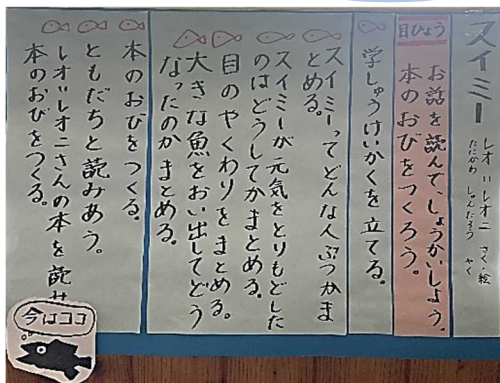 スイミー
レオ=レオニ さく・絵
たにかわ しゅんたろう やく
目ひょう
お話を読んで、しょうかいしよう。
本のおびをつくろう。
学しゅうけいかくを立てる。
スイミーってどんな人ぶつかま
とめる。
スイミーが元気をとりもどした
のはどうしてかまとめる。
目のやくわりをまとめる。
大きな魚をおい出してどう
なったのかまとめる。
本のおびをつくる。
ともだちと読みあう。
レオ=レオニさんの本を読み
本のおびをつくる。
今はココ